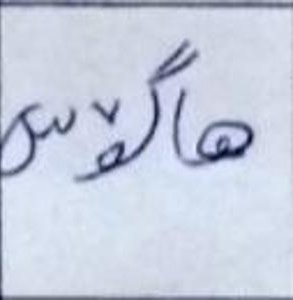 هاگۆس